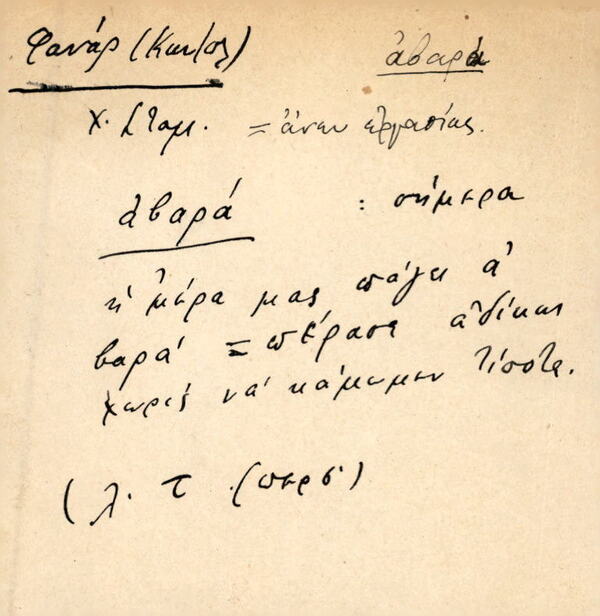 Φανάρ (Κων/πλ)
ἀβαρά
Χ. Σταμ. = ἄνευ ἐργασίας.
ἀβαρά : σήμερα
ἡ μέρα μας πάγει ἀ
βαρά = πέρασε ἀδίκως
χωρίς νά κάμωμεν τίποτε.
(λ. τ. (περσ.)